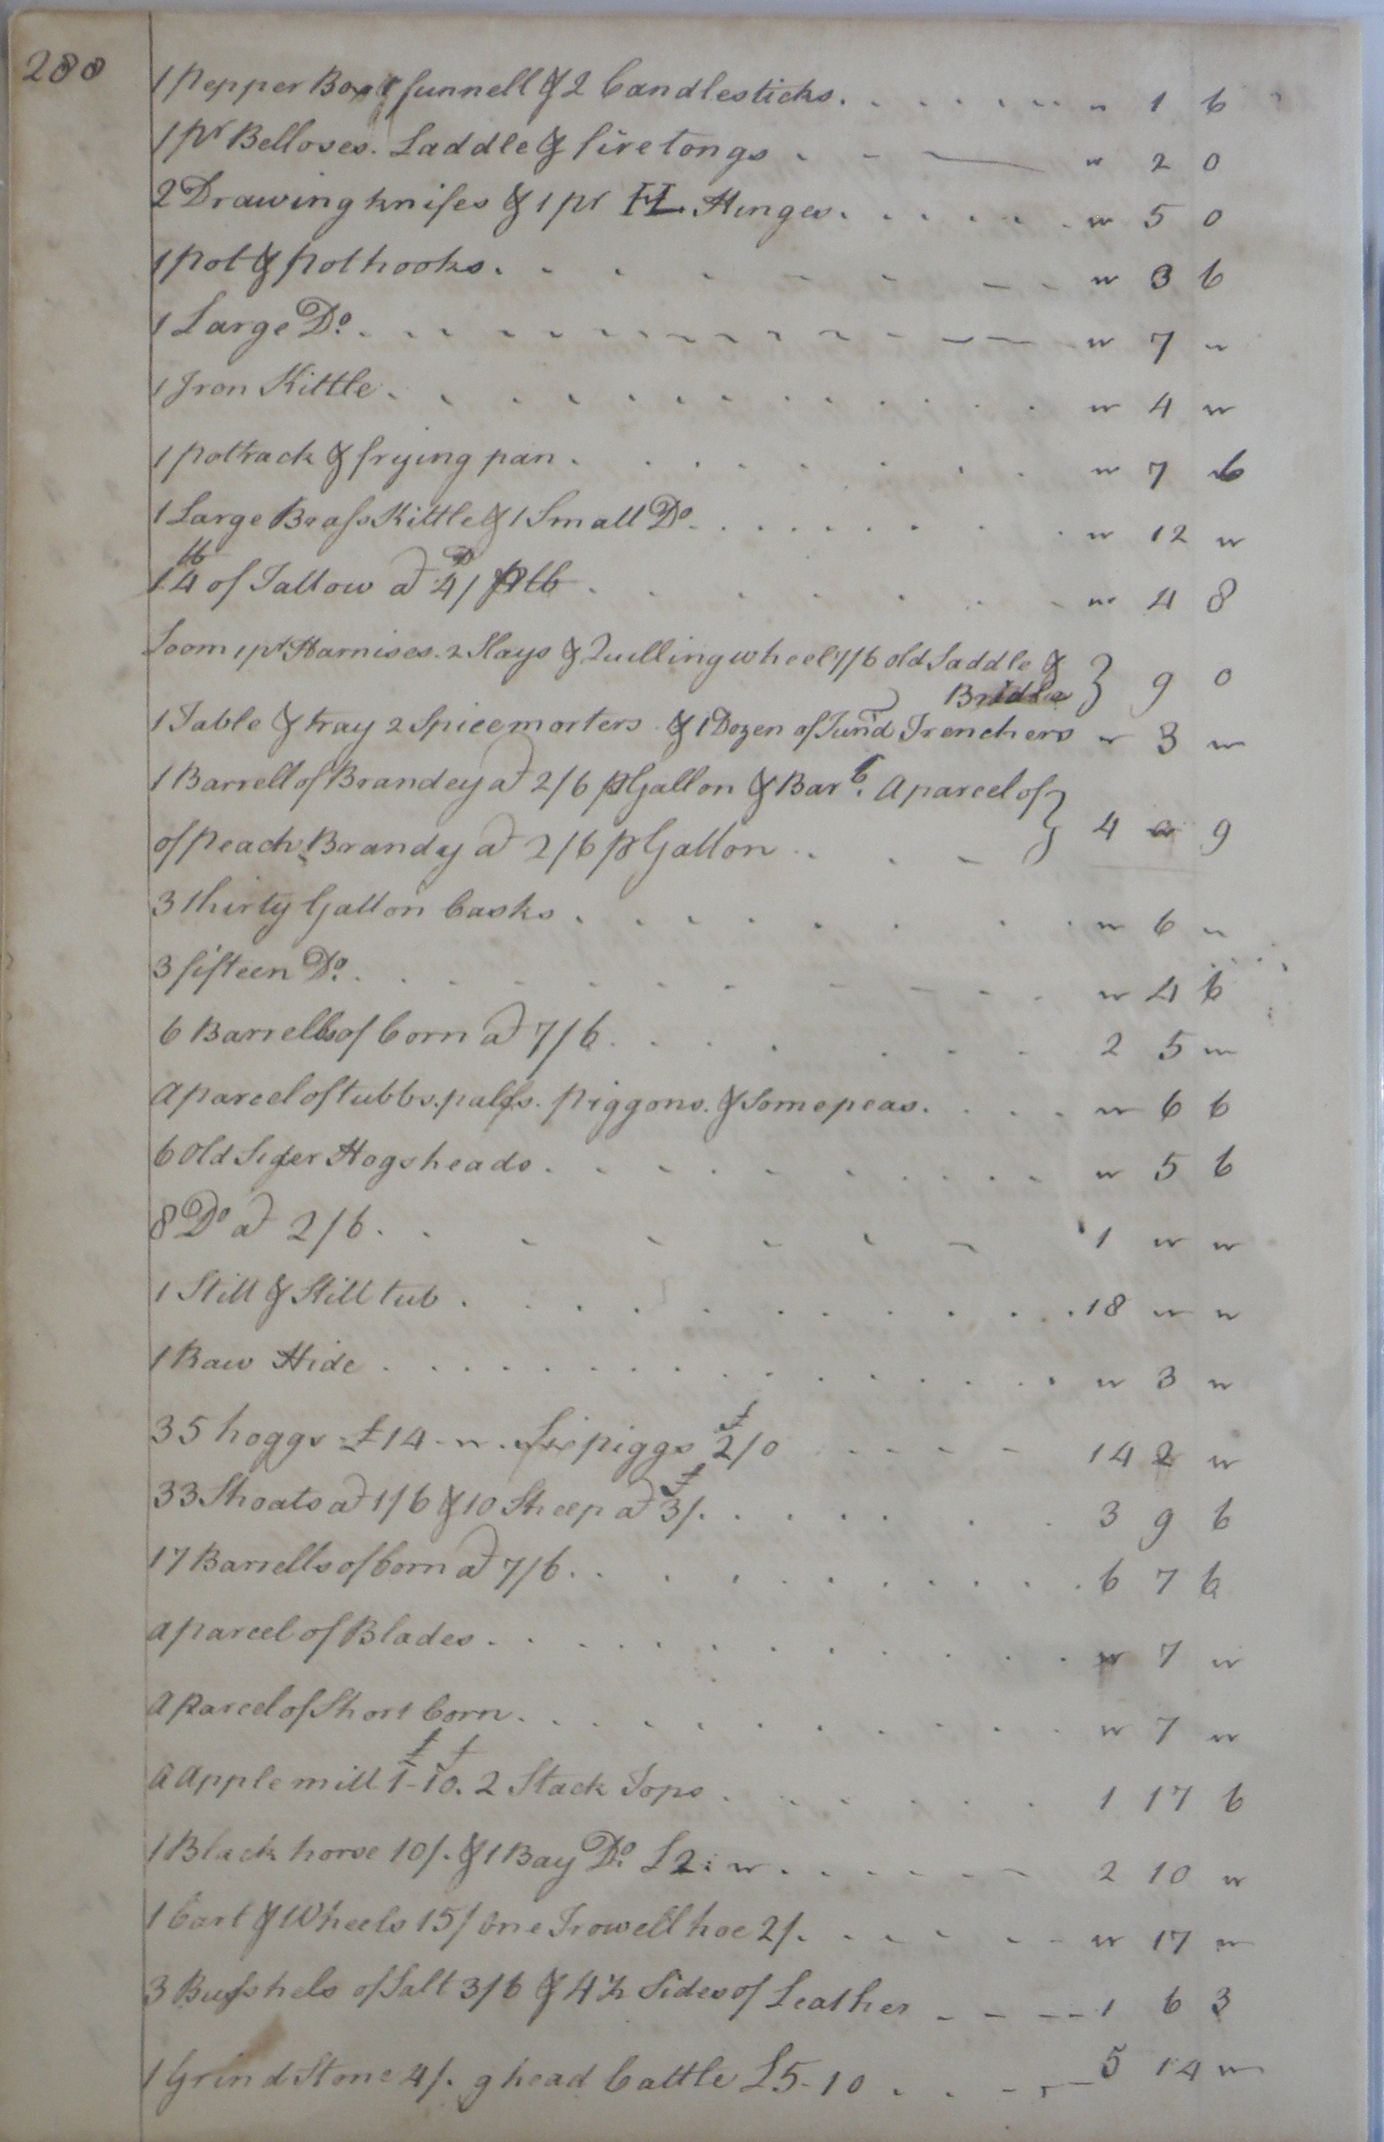 280
1 Pepper Box 1 funnell & 2 Candlesticks. . . . . . " 1 6
1 pr Belloses. Laddle & fire tongs . - — " 2 0
2 Drawing knifes & 1 pr HL. Hinges. . . . . . " 5 0
1 pot & pothooks. . . . . . . " 3 6
1 Large Do. . . . . . . . " 7 "
1 Iron Kittle . . . . . . . " 4 "
1 potrack & frying pan . . . . . . " 7 6
1 Large Brass Kittle & 1 Small Do. . . . . . " 12 "
14 lb of Tallow a 4D/ ℔ lb . . . . . . " 4 8
Loom 1 pr Harnises. 2 Slays & Quilling wheel 7/6 old Saddle & } 9 0
Bridle
1 Table & tray 2 Spice morters & 1 Dozen of Turn'd Trenchers " 3 "
1 Barrell of Brandey a 2/6 p Gallon & Barl. A parcel of }
of Peach Brandy a 2/6 p Gallon . . - } 4 " 9
3 thirty Gallon Casks . . . . . . " 6 "
3 fifteen Do. . . . . . . " 4 6
6 Barrells of Corn a 7/6 . . . . . . 2 5 "
A parcel of tubbs. pails. piggons. & Some peas. . . . . " 6 6
6 Old Sider Hogsheads . . . . . . " 5 6
8 Do a 2/6 . . . . . . 1 " "
1 Still & Still tub . . . . . . . 18 " "
1 Raw Hide . . . . . . . " 3 "
35 hoggs £14 - ". Six piggs 2/0 . . . . 14 2 "
33 Shoats a 1/6 & 10 Sheep a 3/. . . . . . 3 9 6
17 Barrells of Corn a 7/6 . . . . . . . 6 7 6
a parcel of Blades . . . . . . . " 7 "
A Parcel of Short Corn . . . . . . " 7 "
A Apple mill 1 - 10. 2 Stack Tops . . . . . 1 17 6
1 Black horse 10/. & 1 Bay Do. £2: " . . . . . 2 10 "
1 Cart & Wheels 15/ One Trowell hoe 2/. . . . . " 17 "
3 Busshels of Salt 3/6 & 4½ Sides of Leather - - - - 1 6 3
1 Grind Stone 4/. 9 head Cattle £5-10 . . - - 5 14 "